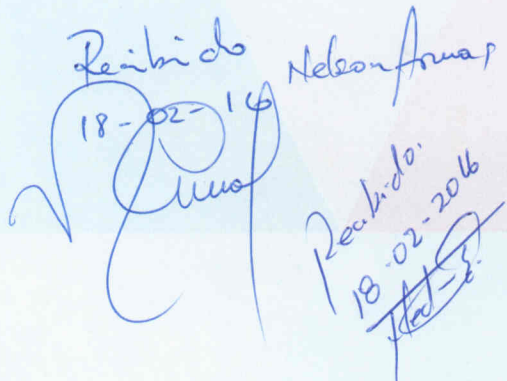 Recibido Nelson Armas
18-02-16
Recibido.
18-02-2016